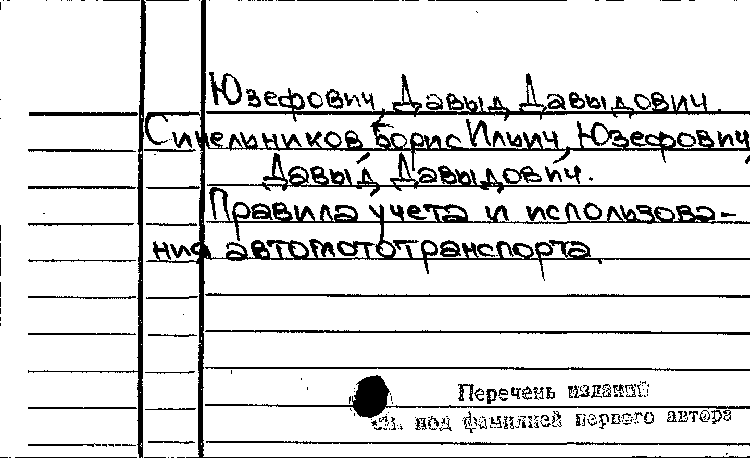 Юзефович, Давыд Давыдович.
Синельников, Борис Ильич, Юзефович,
Давыд Давыдович.
Правила учета и использова-
ния автомототранспорта.
Перечень изданий
см. под фамилией первого автора